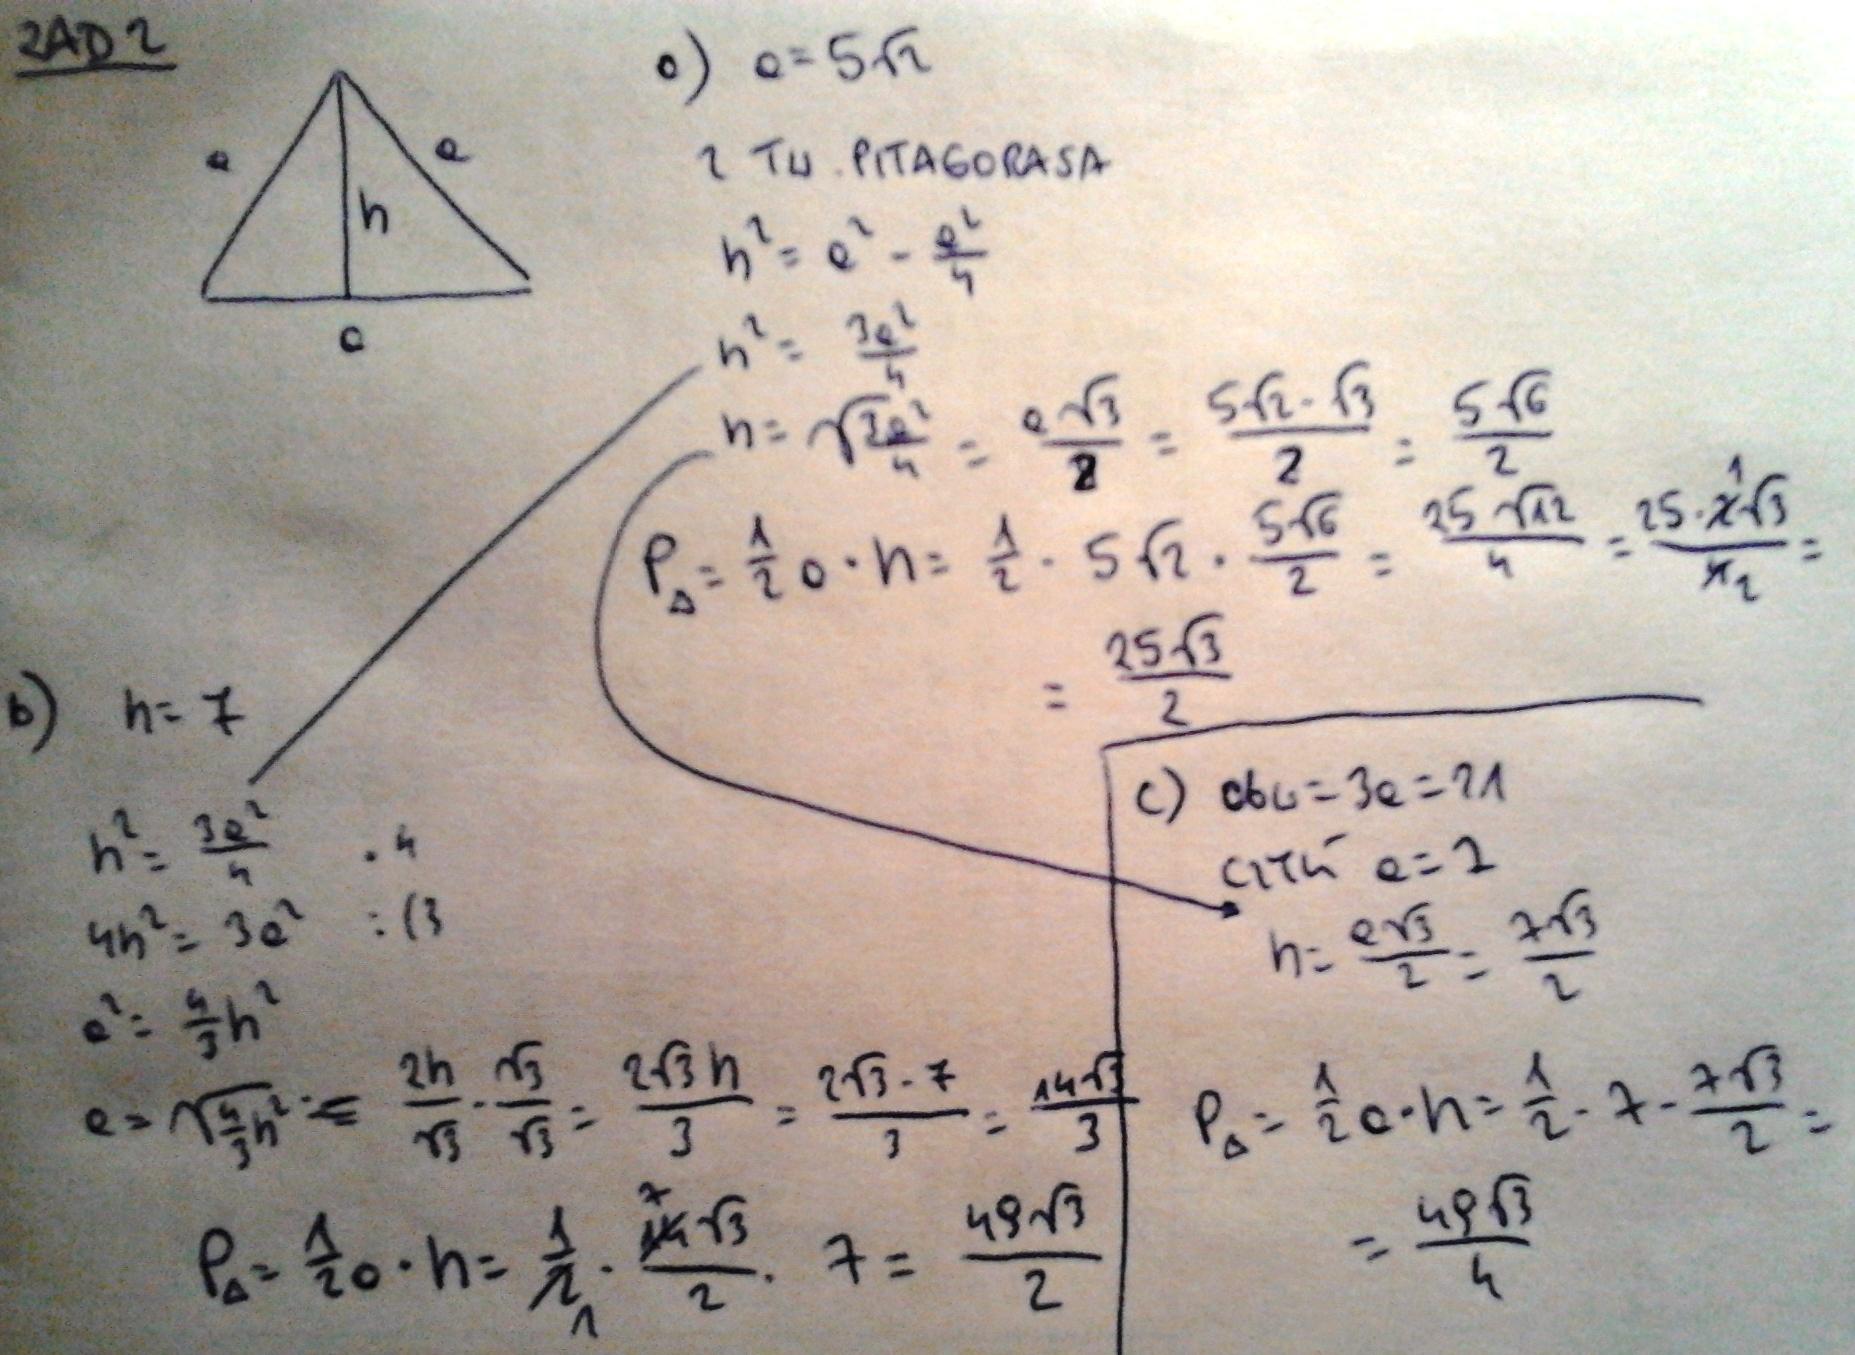 ZAD 2
a
a
h
a
a) a = 5√2
z TW. PITAGORASA
h² = a² - a²/4
h² = 3a²/4
h = √(3a²/4) = a√3/2 = 5√2·√3/2 = 5√6/2
P△ = 1/2 a · h = 1/2 · 5√2 · 5√6/2 = 25√12/4 = 25·2√3/4 =
1
2
= 25√3/2
b) h = 7
h² = 3a²/4 · 4
4h² = 3a² :(3
a² = 4/3 h²
a = √(4/3 h²) = 2h/√3 · √3/√3 = 2√3h/3 = 2√3·7/3 = 14√3/3
P△ = 1/2 a · h = 1/2 · 14√3/2 · 7 = 49√3/2
7
1
c) obw = 3a = 21
czyli a = 7
h = a√3/2 = 7√3/2
P△ = 1/2 a · h = 1/2 · 7 · 7√3/2 =
= 49√3/4